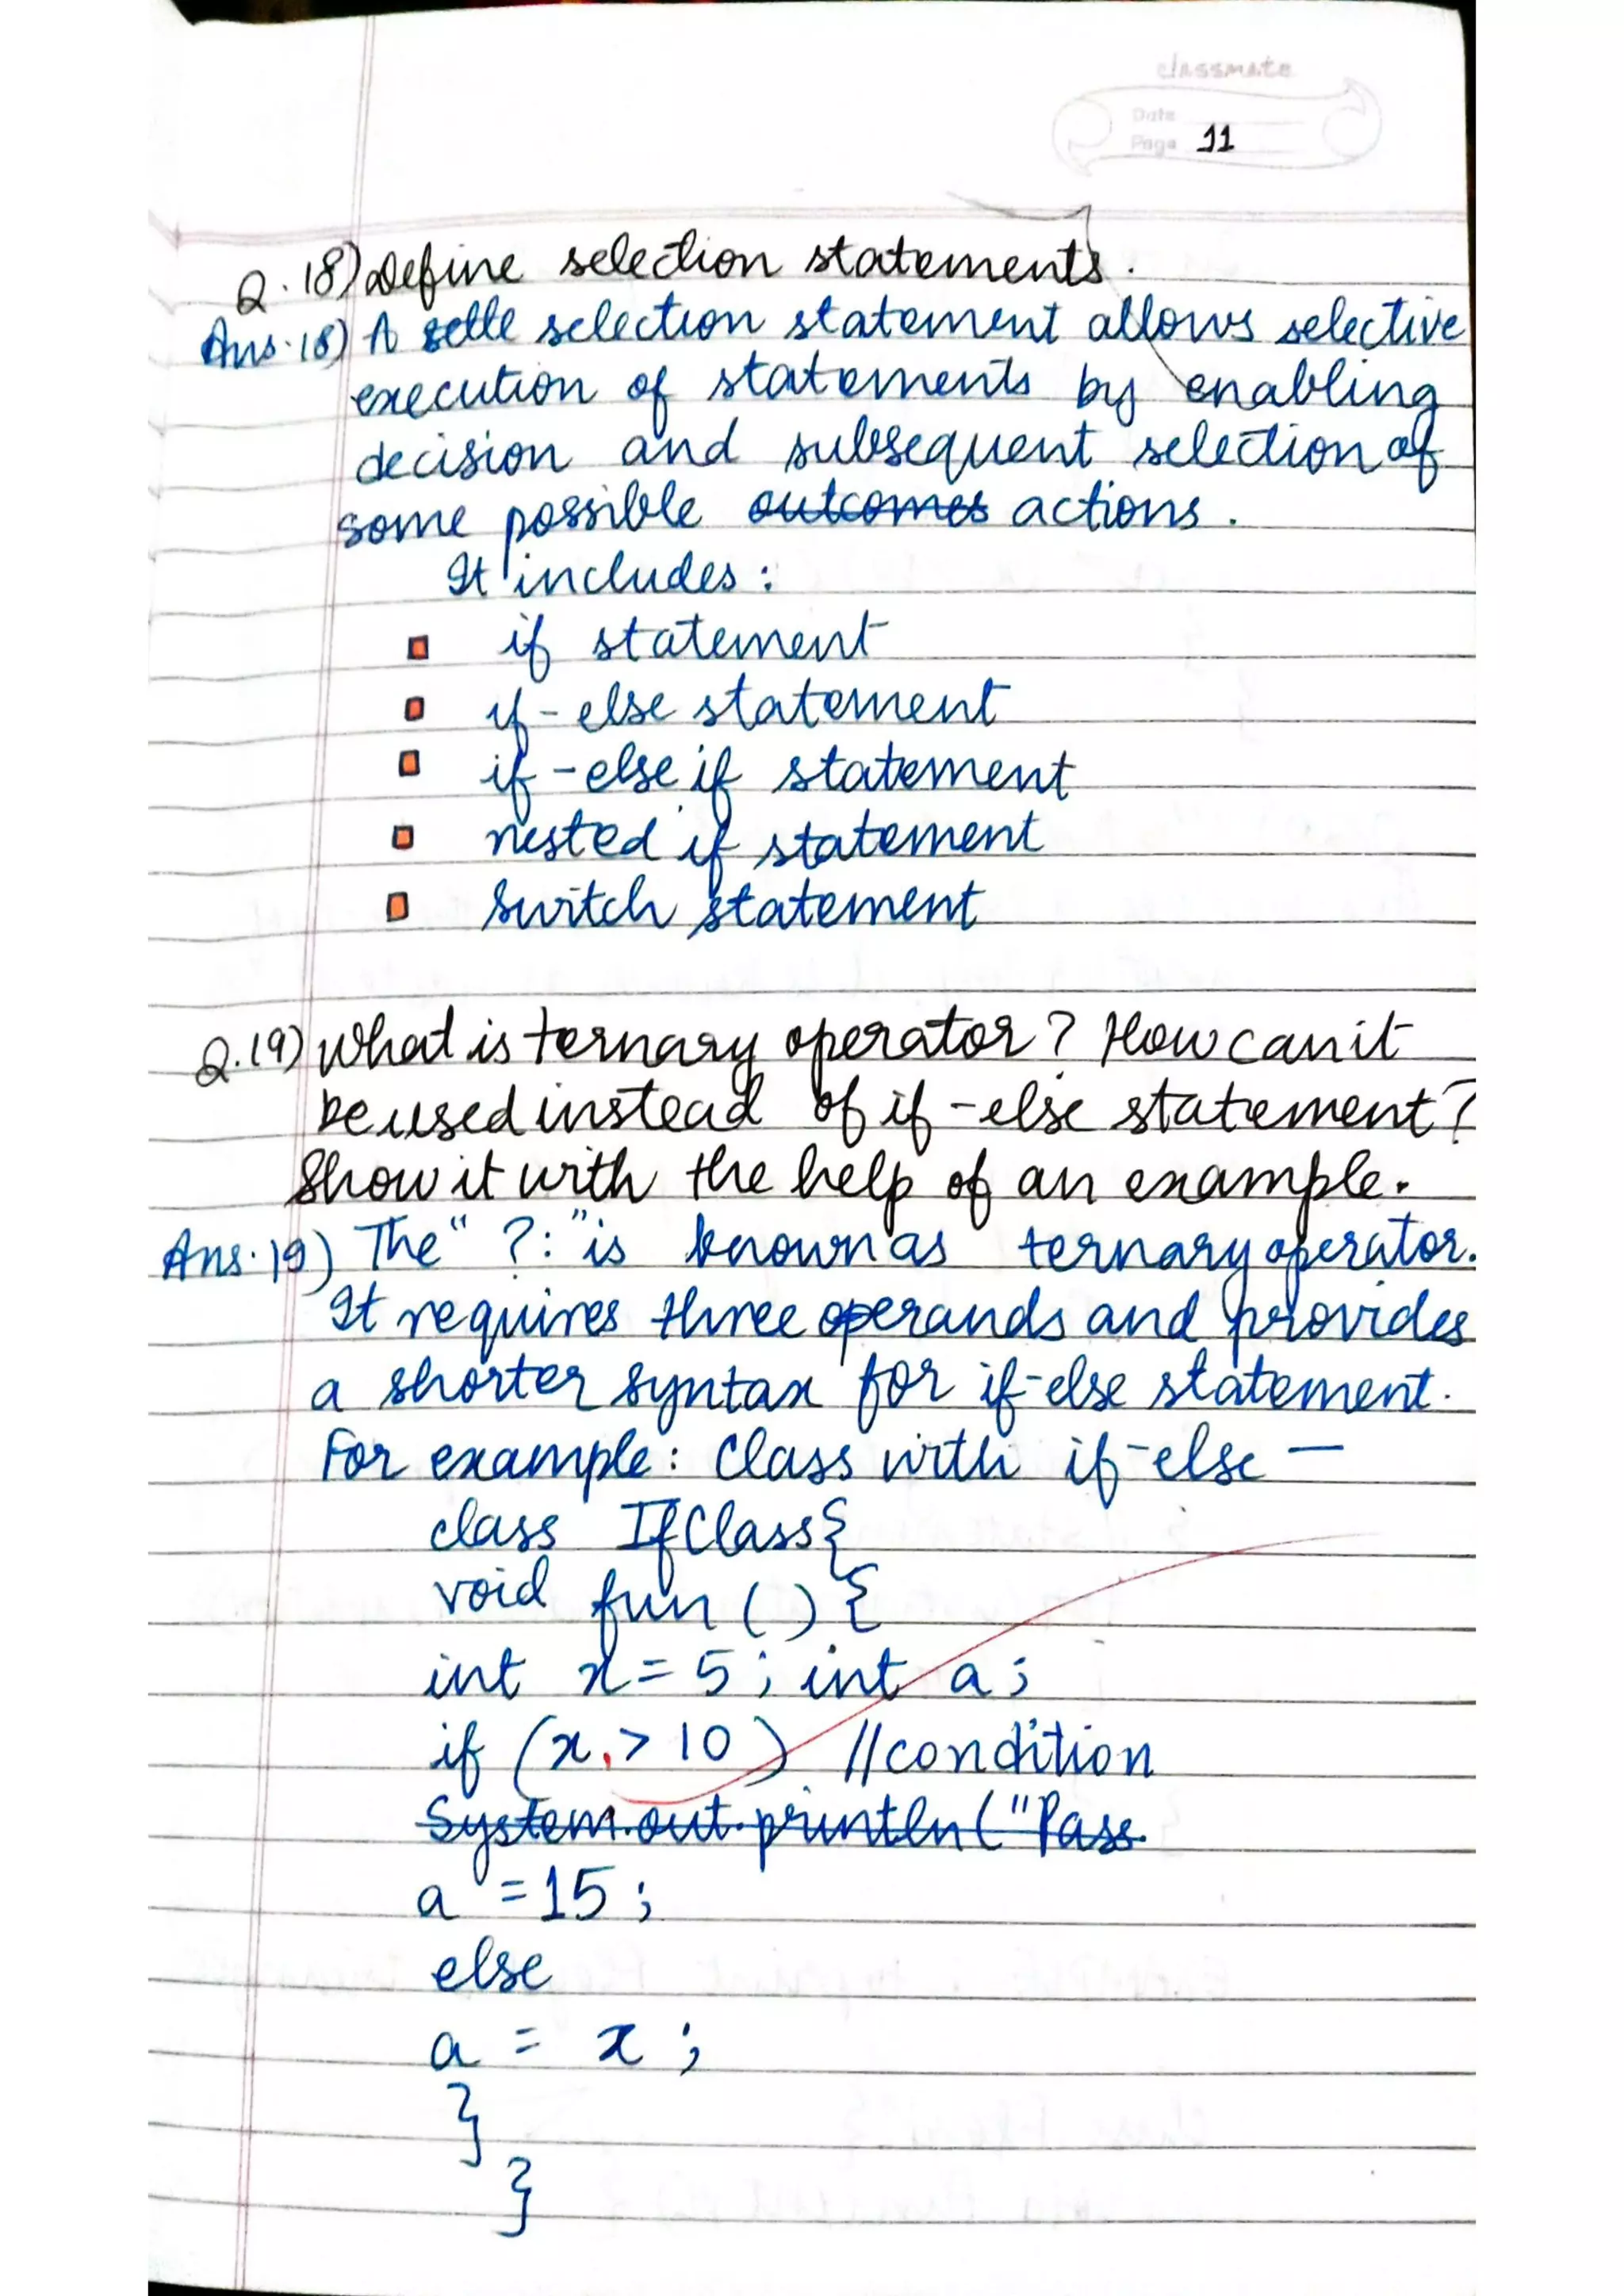 classmate
Date
Page 11
Q.18) Define selection statements.
Ans.18) A selte selection statement allows selective
execution of statements by enabling
decision and subsequent selection of
some possible outcomes actions.
It includes:
if statement
if-else statement
if-else if statement
nested if statement
switch statement
Q.19) What is ternary operator? How can it
be used instead of if-else statement?
Show it with the help of an example.
Ans.19) The " ?: " is known as ternary operator.
It requires three operands and provides
a shorter syntax for if-else statement.
For example: Class with if-else —
class IfClass{
void fun () {
int x = 5; int a;
if (x > 10) //condition
System.out.println("Pass
a = 15;
else
a = x;
}
}